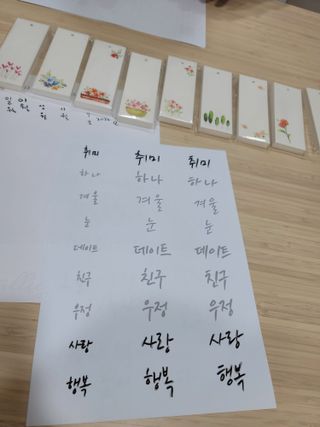 취미 취미 취미
하나 하나 하나
겨울 겨울 겨울
눈 눈 눈
데이트 데이트 데이트
친구 친구 친구
우정 우정 우정
사랑 사랑 사랑
행복 행복 행복